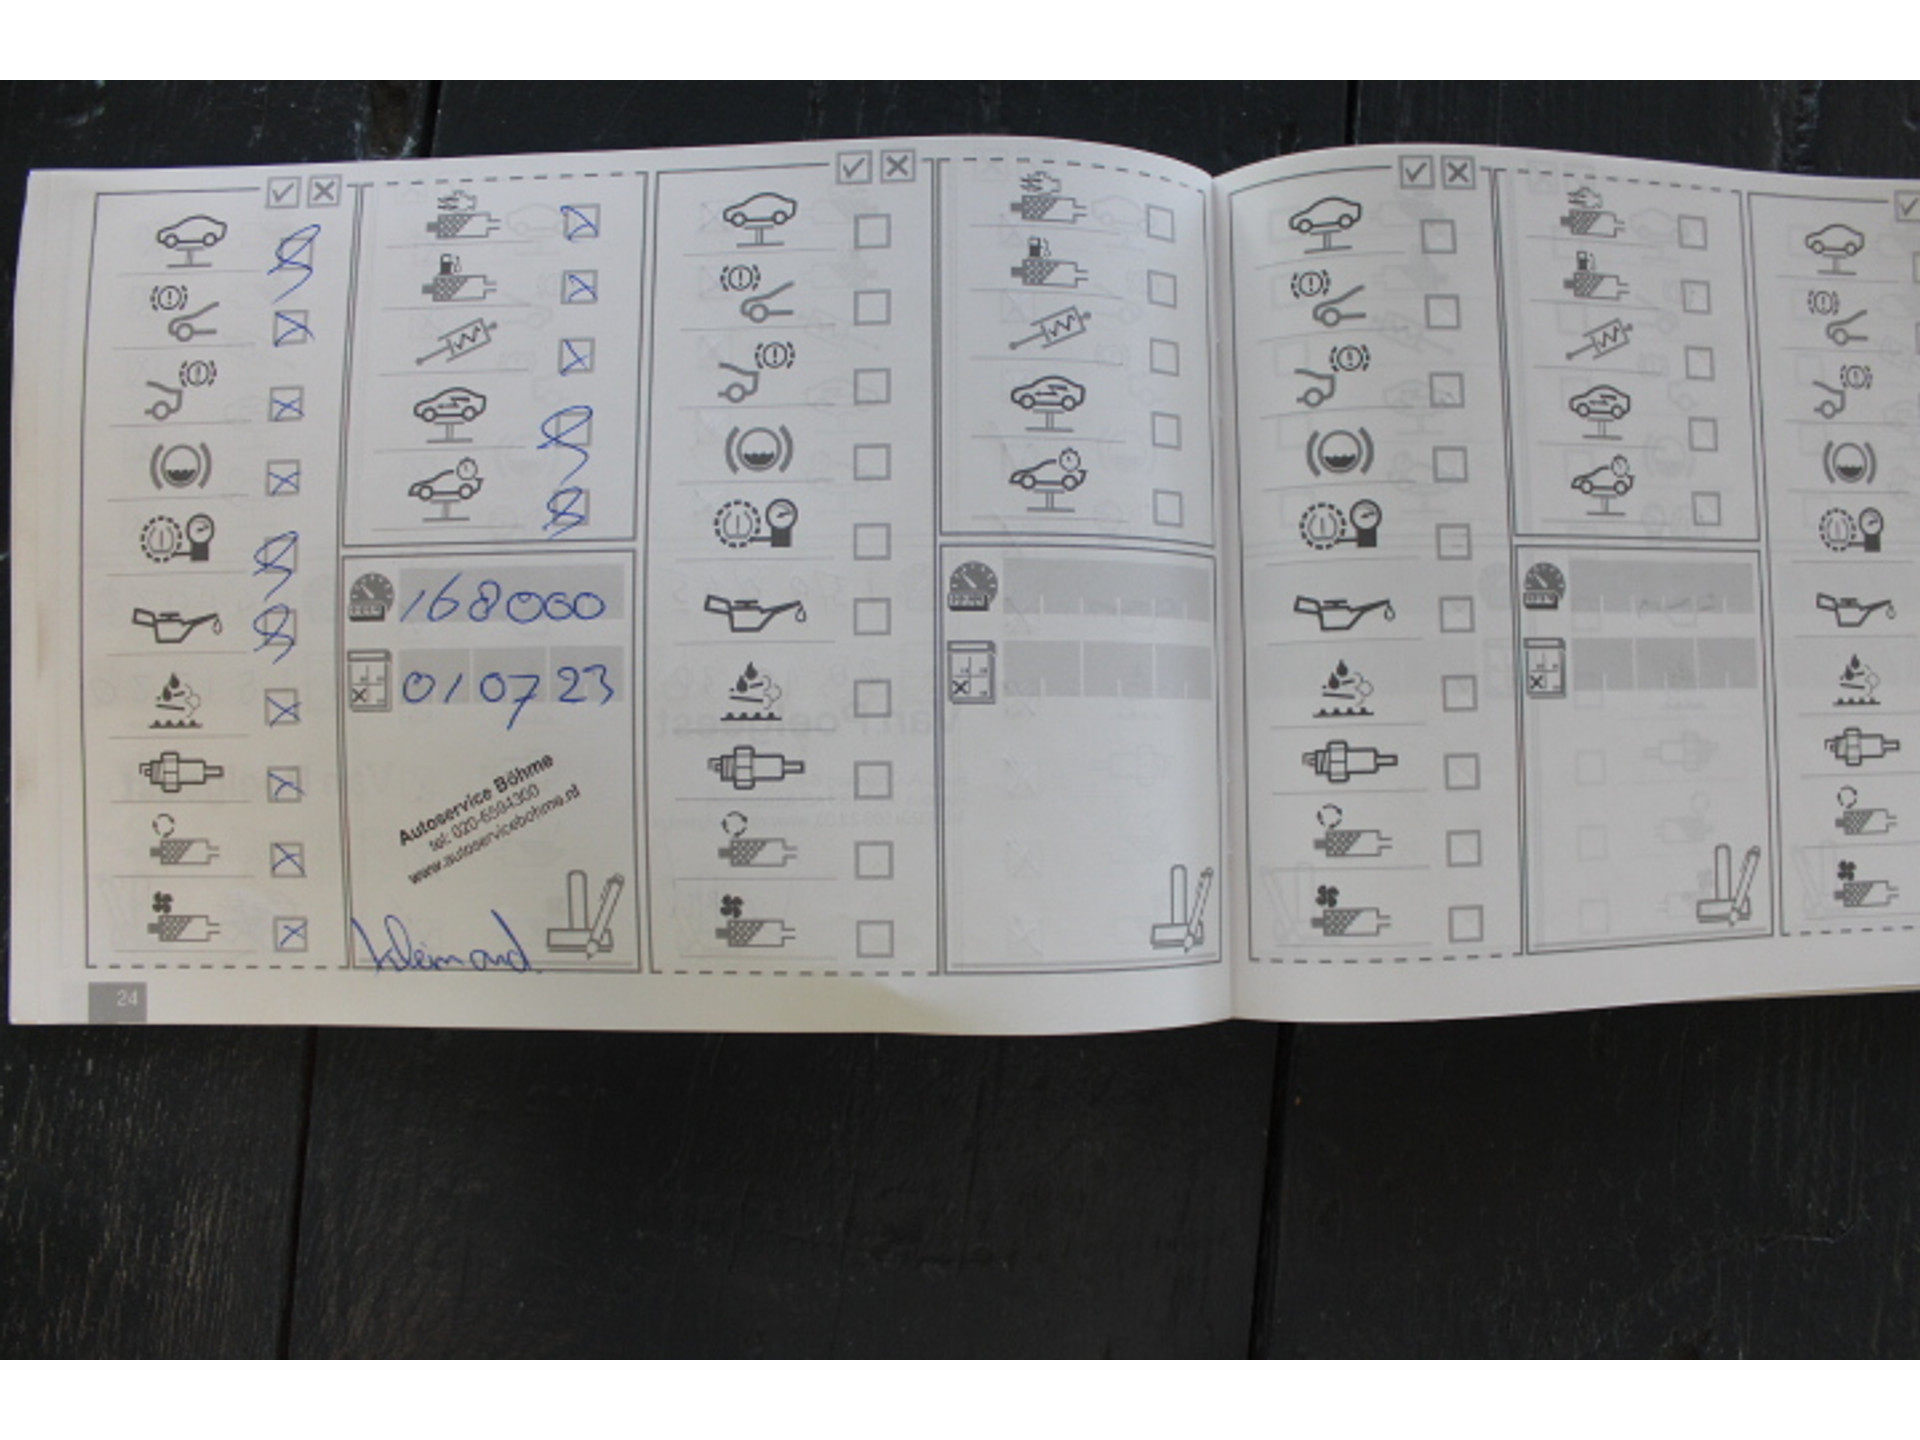 168000
01 07 23
Autoservice Böhme
tel: 020-6594300
www.autoservicebohme.nl
24